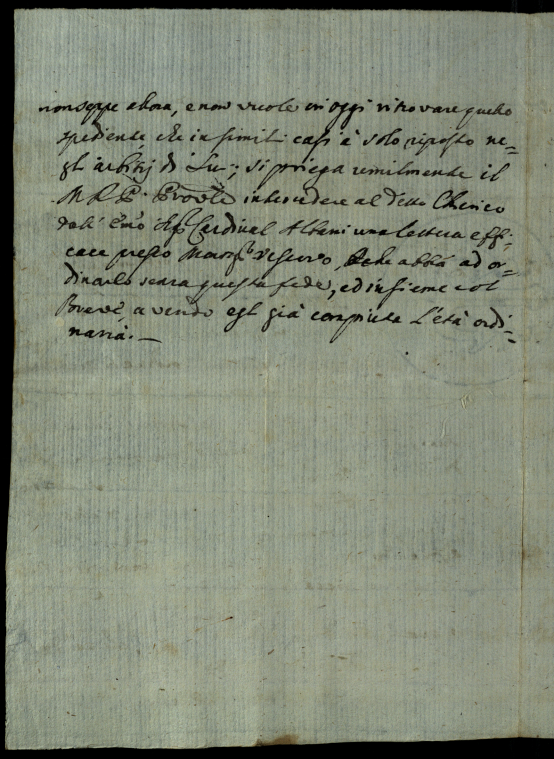 non seppe allora, e non vuole in oggi ritrovare quello
spediente, che in simili casi è solo riposto ne=
gl'arbitrj di Lui; si priega umilmente il
M. R. P. Provle intercedere al detto Chierico
dall' Emo Sigr Cardinal Albani una lettera effi=
cace presso Monsigr Vescovo, che abbia ad or=
dinarlo senza questa fede, ed insieme col
Breve, avendo egli già compiuta l'età ordi=
naria.—